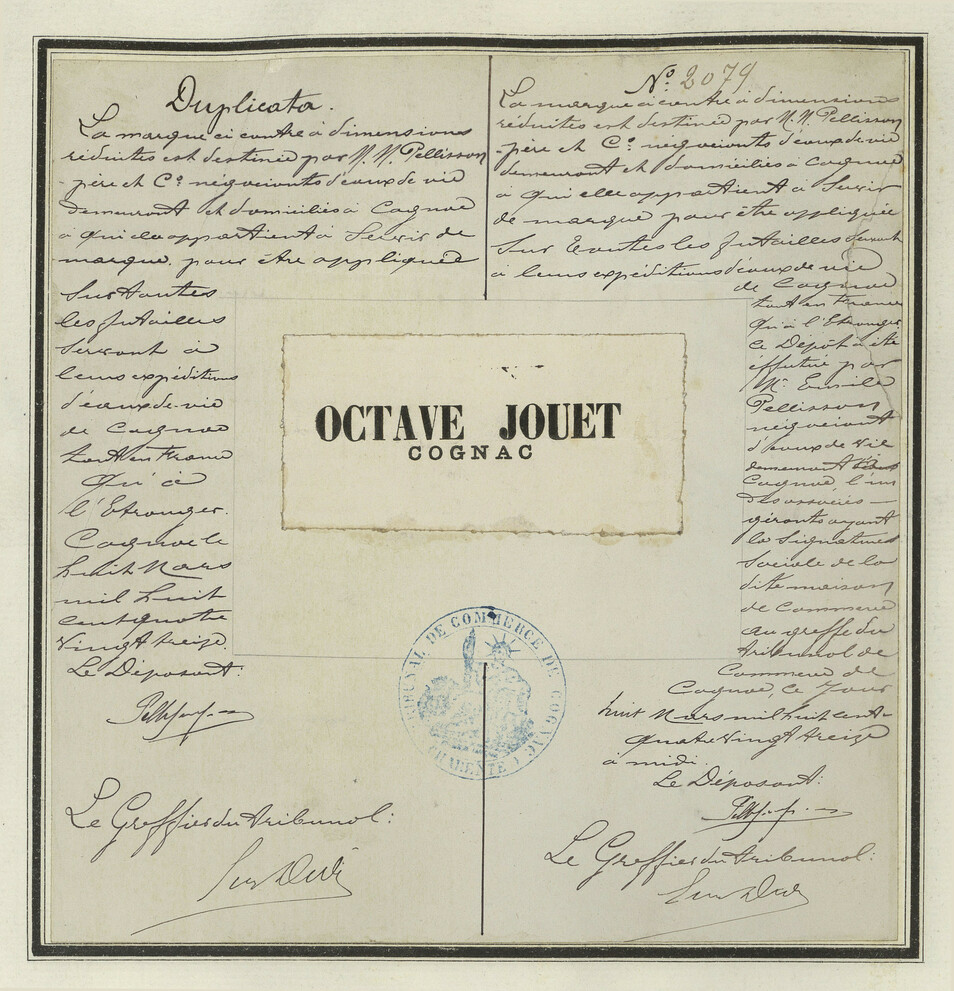 Duplicata.
La marque ci contre à dimensions
réduites est destinée par M. M. Pellisson
père et Cº négociants d'eaux de vie
demeurant et domiciliés à Cognac
à qui elle appartient à Servir de
marque pour être appliquée
Sur toutes
les futailles
Servant à
leurs expéditions
d'eaux-de-vie
de Cognac
tant en France
Qu'à
l'Etranger.
Cognac le
huit Mars
mil huit
cent quatre
Vingt treize.
Le Déposant:
Le Greffier du tribunal:
Nº 2079
La marque ci contre à dimensions
réduites est destinée par M. M. Pellisson
père et Cº négociants d'eaux de vie
demeurant et domiciliés à Cognac
à qui elle appartient à Servir
de marque pour être appliquée
Sur Toutes les futailles Servant
à leurs expéditions d'eaux de vie
de Cognac
tant en France
Qu'à l'Etranger.
Ce Dépôt a été
éffectué par
Mr Emile
Pellisson
négociant
d'eaux de vie
demeurant
Cognac, l'un
des associés
gérants ayant
la Signature
Sociale de la
dite maison
de Commerce
au greffe du
tribunal de
Commerce de
Cognac, le Jour
huit Mars mil huit cent-
quatre Vingt treize
à midi.
Le Déposant:
Le Greffier du tribunal:
OCTAVE JOUET
COGNAC
TRIBUNAL DE COMMERCE DE COGNAC
(CHARENTE)